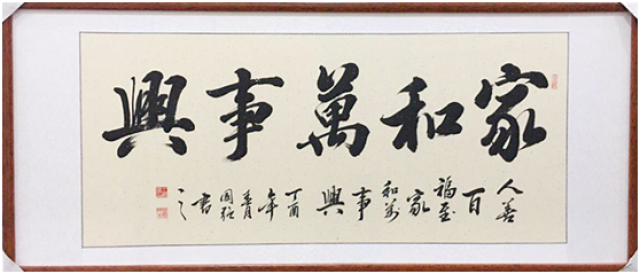 家和萬事興
人善百福至家和萬事興丁酉年月國書之